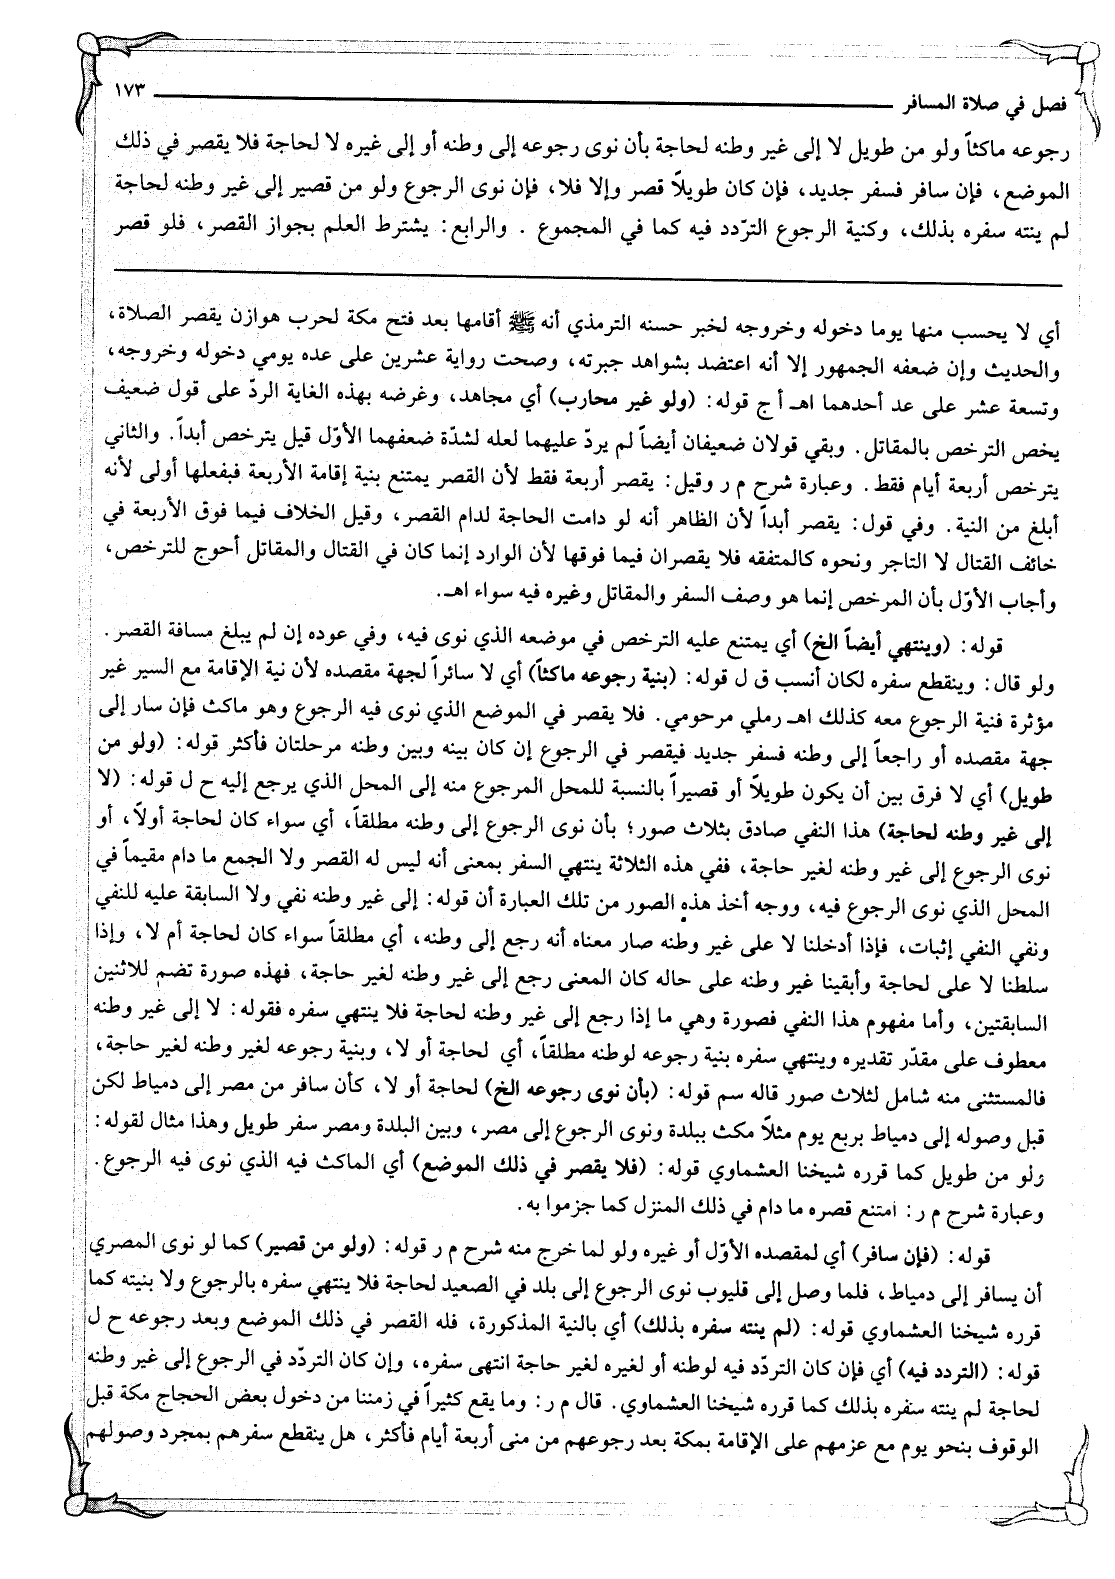 فصل في صلاة المسافر ١٧٣
رجوعه ماكثاً ولو من طويل لا إلى غير وطنه لحاجة بأن نوى رجوعه إلى وطنه أو إلى غيره لا لحاجة فلا يقصر في ذلك
الموضع، فإن سافر فسفر جديد، فإن كان طويلاً قصر وإلا فلا، فإن نوى الرجوع ولو من قصير إلى غير وطنه لحاجة
لم ينته سفره بذلك، وكنية الرجوع التردّد فيه كما في المجموع . والرابع: يشترط العلم بجواز القصر، فلو قصر
أي لا يحسب منها يوما دخوله وخروجه لخبر حسنه الترمذي أنه ﷺ أقامها بعد فتح مكة لحرب هوازن يقصر الصلاة،
والحديث وإن ضعفه الجمهور إلا أنه اعتضد بشواهد جبرته، وصحت رواية عشرين على عده يومي دخوله وخروجه،
وتسعة عشر على عد أحدهما اهـ أ ج قوله: (ولو غير محارب) أي مجاهد، وغرضه بهذه الغاية الردّ على قول ضعيف
يخص الترخص بالمقاتل. وبقي قولان ضعيفان أيضاً لم يردّ عليهما لعله لشدّة ضعفهما الأوّل قيل يترخص أبداً. والثاني
يترخص أربعة أيام فقط. وعبارة شرح م ر وقيل: يقصر أربعة فقط لأن القصر يمتنع بنية إقامة الأربعة فبفعلها أولى لأنه
أبلغ من النية. وفي قول: يقصر أبداً لأن الظاهر أنه لو دامت الحاجة لدام القصر، وقيل الخلاف فيما فوق الأربعة في
خائف القتال لا التاجر ونحوه كالمتفقه فلا يقصران فيما فوقها لأن الوارد إنما كان في القتال والمقاتل أحوج للترخص،
وأجاب الأوّل بأن المرخص إنما هو وصف السفر والمقاتل وغيره فيه سواء اهـ.
قوله: (وينتهي أيضاً الخ) أي يمتنع عليه الترخص في موضعه الذي نوى فيه، وفي عوده إن لم يبلغ مسافة القصر.
ولو قال: وينقطع سفره لكان أنسب ق ل قوله: (بنية رجوعه ماكثاً) أي لا سائراً لجهة مقصده لأن نية الإقامة مع السير غير
مؤثرة فنية الرجوع معه كذلك اهـ رملي مرحومي. فلا يقصر في الموضع الذي نوى فيه الرجوع وهو ماكث فإن سار إلى
جهة مقصده أو راجعاً إلى وطنه فسفر جديد فيقصر في الرجوع إن كان بينه وبين وطنه مرحلتان فأكثر قوله: (ولو من
طويل) أي لا فرق بين أن يكون طويلاً أو قصيراً بالنسبة للمحل المرجوع منه إلى المحل الذي يرجع إليه ح ل قوله: (لا
إلى غير وطنه لحاجة) هذا النفي صادق بثلاث صور؛ بأن نوى الرجوع إلى وطنه مطلقاً، أي سواء كان لحاجة أولاً، أو
نوى الرجوع إلى غير وطنه لغير حاجة، ففي هذه الثلاثة ينتهي السفر بمعنى أنه ليس له القصر ولا الجمع ما دام مقيماً في
المحل الذي نوى الرجوع فيه، ووجه أخذ هذه الصور من تلك العبارة أن قوله: إلى غير وطنه نفي ولا السابقة عليه للنفي
ونفي النفي إثبات، فإذا أدخلنا لا على غير وطنه صار معناه أنه رجع إلى وطنه، أي مطلقاً سواء كان لحاجة أم لا، وإذا
سلطنا لا على لحاجة وأبقينا غير وطنه على حاله كان المعنى رجع إلى غير وطنه لغير حاجة، فهذه صورة تضم للاثنين
السابقتين، وأما مفهوم هذا النفي فصورة وهي ما إذا رجع إلى غير وطنه لحاجة فلا ينتهي سفره فقوله: لا إلى غير وطنه
معطوف على مقدّر تقديره وينتهي سفره بنية رجوعه لوطنه مطلقاً، أي لحاجة أو لا، وبنية رجوعه لغير وطنه لغير حاجة،
فالمستثنى منه شامل لثلاث صور قاله سم قوله: (بأن نوى رجوعه الخ) لحاجة أو لا، كأن سافر من مصر إلى دمياط لكن
قبل وصوله إلى دمياط بربع يوم مثلاً مكث ببلدة ونوى الرجوع إلى مصر، وبين البلدة ومصر سفر طويل وهذا مثال لقوله:
ولو من طويل كما قرره شيخنا العشماوي قوله: (فلا يقصر في ذلك الموضع) أي الماكث فيه الذي نوى فيه الرجوع.
وعبارة شرح م ر: امتنع قصره ما دام في ذلك المنزل كما جزموا به.
قوله: (فإن سافر) أي لمقصده الأوّل أو غيره ولو لما خرج منه شرح م ر قوله: (ولو من قصير) كما لو نوى المصري
أن يسافر إلى دمياط، فلما وصل إلى قليوب نوى الرجوع إلى بلد في الصعيد لحاجة فلا ينتهي سفره بالرجوع ولا بنيته كما
قرره شيخنا العشماوي قوله: (لم ينته سفره بذلك) أي بالنية المذكورة، فله القصر في ذلك الموضع وبعد رجوعه ح ل
قوله: (التردد فيه) أي فإن كان التردّد فيه لوطنه أو لغيره لغير حاجة انتهى سفره، وإن كان التردّد في الرجوع إلى غير وطنه
لحاجة لم ينته سفره بذلك كما قرره شيخنا العشماوي. قال م ر: وما يقع كثيراً في زمننا من دخول بعض الحجاج مكة قبل
الوقوف بنحو يوم مع عزمهم على الإقامة بمكة بعد رجوعهم من منى أربعة أيام فأكثر، هل ينقطع سفرهم بمجرد وصولهم